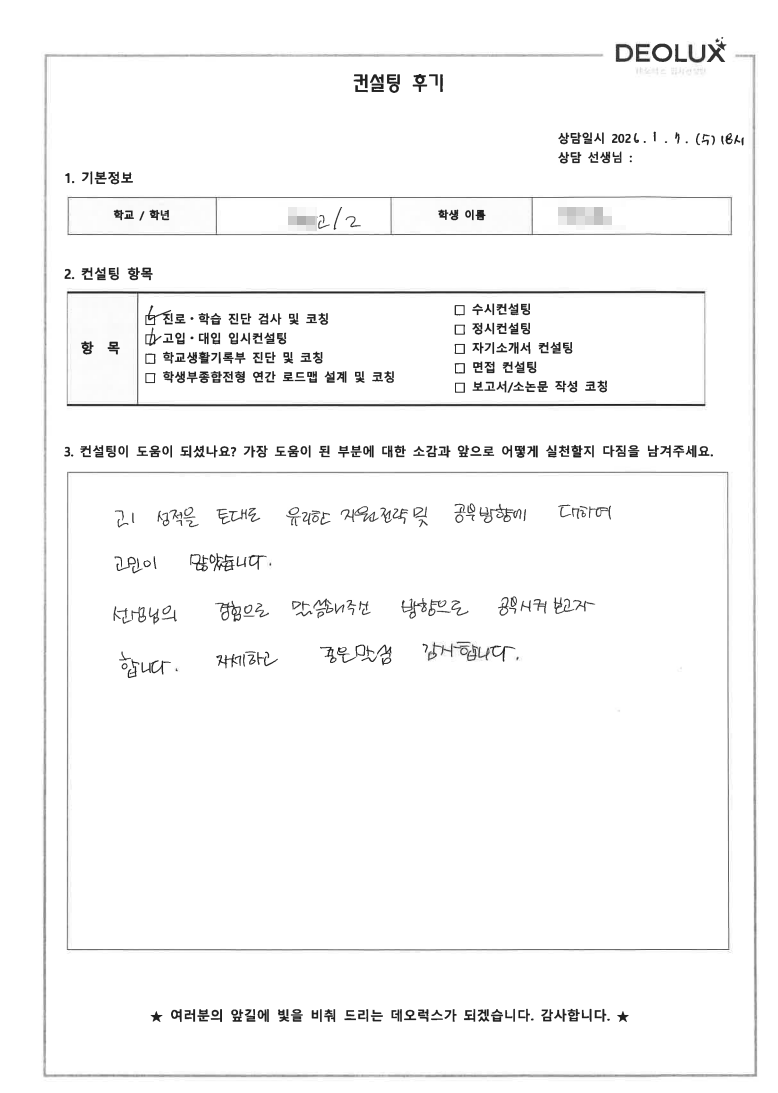 DEOLUX
데오럭스 입시컨설팅
컨설팅 후기
상담일시 2026. 1. 7. (수) 18시
상담 선생님 :
1. 기본정보
학교 / 학년 고/2 학생 이름
2. 컨설팅 항목
항 목
진로·학습 진단 검사 및 코칭
고입·대입 입시컨설팅
□ 학교생활기록부 진단 및 코칭
□ 학생부종합전형 연간 로드맵 설계 및 코칭
□ 수시컨설팅
□ 정시컨설팅
□ 자기소개서 컨설팅
□ 면접 컨설팅
□ 보고서/소논문 작성 코칭
3. 컨설팅이 도움이 되셨나요? 가장 도움이 된 부분에 대한 소감과 앞으로 어떻게 실천할지 다짐을 남겨주세요.
고1 성적을 토대로 유리한 지원전략 및 공부방향에 대하여
고민이 많았습니다.
선생님의 경험으로 말씀해주신 방향으로 공부시켜보고자
합니다. 자세하고 좋은말씀 감사합니다.
★ 여러분의 앞길에 빛을 비춰 드리는 데오럭스가 되겠습니다. 감사합니다. ★